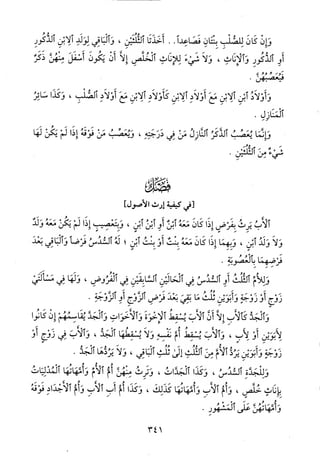 وَإِنْ كَانَ لِلصُّلْبِ بِنْتَانِ فَصَاعِداً.. أَخَذَتَا الثُّلُثَيْنِ ، وَالْبَاقِي لِوَلَدِ الِابْنِ الذُّكُورِ
أَوِ الذُّكُورِ وَالْإِنَاثِ ، وَلَا شَيْءَ لِلْإِنَاثِ الْخُلَّصِ إِلَّا أَنْ يَكُونَ أَسْفَلَ مِنْهُنَّ ذَكَرٌ
فَيُعَصِّبُهُنَّ .
وَأَوْلَادُ ابْنِ الِابْنِ مَعَ أَوْلَادِ الِابْنِ كَأَوْلَادِ الِابْنِ مَعَ أَوْلَادِ الصُّلْبِ ، وَكَذَا سَائِرُ
الْمَنَازِلِ .
وَإِنَّمَا يُعَصِّبُ الذَّكَرُ النَّازِلُ مَنْ فِي دَرَجَتِهِ ، وَيُعَصِّبُ مَنْ فَوْقَهُ إِذَا لَمْ يَكُنْ لَهَا
شَيْءٌ مِنَ الثُّلُثَيْنِ .
فَصْلٌ
[في كيفية إرث الأصول]
الْأَبُ يَرِثُ بِفَرْضٍ إِذَا كَانَ مَعَهُ ابْنٌ أَوِ ابْنُ ابْنٍ ، وَبِتَعْصِيبٍ إِذَا لَمْ يَكُنْ مَعَهُ وَلَدٌ
وَلَا وَلَدُ ابْنٍ ، وَبِهِمَا إِذَا كَانَ مَعَهُ بِنْتٌ أَوْ بِنْتُ ابْنٍ ؛ لَهُ السُّدُسُ فَرْضاً وَالْبَاقِي بَعْدَ
فَرْضِهِمَا بِالْعُصُوبَةِ .
وَلِلْأُمِّ الثُّلُثُ أَوِ السُّدُسُ فِي الْحَالَيْنِ السَّابِقَيْنِ فِي الْفُرُوضِ ، وَلَهَا فِي مَسْأَلَتَيْ
زَوْجٍ أَوْ زَوْجَةٍ وَأَبَوَيْنِ ثُلُثُ مَا بَقِيَ بَعْدَ فَرْضِ الزَّوْجِ أَوِ الزَّوْجَةِ .
وَالْجَدُّ كَالْأَبِ إِلَّا أَنَّ الْأَبَ يُسْقِطُ الْإِخْوَةَ وَالْأَخَوَاتِ وَالْجَدُّ يُقَاسِمُهُمْ إِنْ كَانُوا
لِأَبَوَيْنِ أَوْ لِأَبٍ ، وَالْأَبُ يُسْقِطُ أُمَّ نَفْسِهِ وَلَا يُسْقِطُهَا الْجَدُّ ، وَالْأَبُ فِي زَوْجٍ أَوْ
زَوْجَةٍ وَأَبَوَيْنِ يَرُدُّ الْأُمَّ مِنَ الثُّلُثِ إِلَى ثُلُثِ الْبَاقِي ، وَلَا يَرُدُّهَا الْجَدُّ .
وَلِلْجَدَّةِ السُّدُسُ ، وَكَذَا الْجَدَّاتُ ، وَتَرِثُ مِنْهُنَّ أُمُّ الْأُمِّ وَأُمَّهَاتُهَا الْمُدْلِيَاتُ
بِإِنَاثٍ خُلَّصٍ ، وَأُمُّ الْأَبِ وَأُمَّهَاتُهَا كَذَلِكَ ، وَكَذَا أُمُّ أَبِ الْأَبِ وَأُمُّ الْأَجْدَادِ فَوْقَهُ
وَأُمَّهَاتُهُنَّ عَلَى الْمَشْهُورِ .
٣٤١